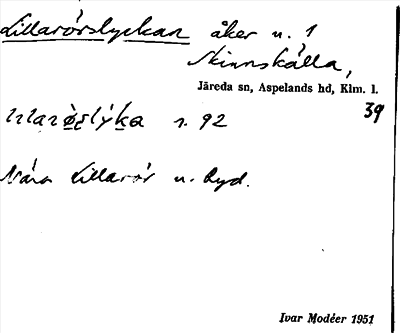 Lillarörslyckan åker u. 1
Skinnskälla,
Järeda sn, Aspelands hd, Klm. l.
39
s. 92
Nära Lillarör u. Ryd.
Ivar Modéer 1951